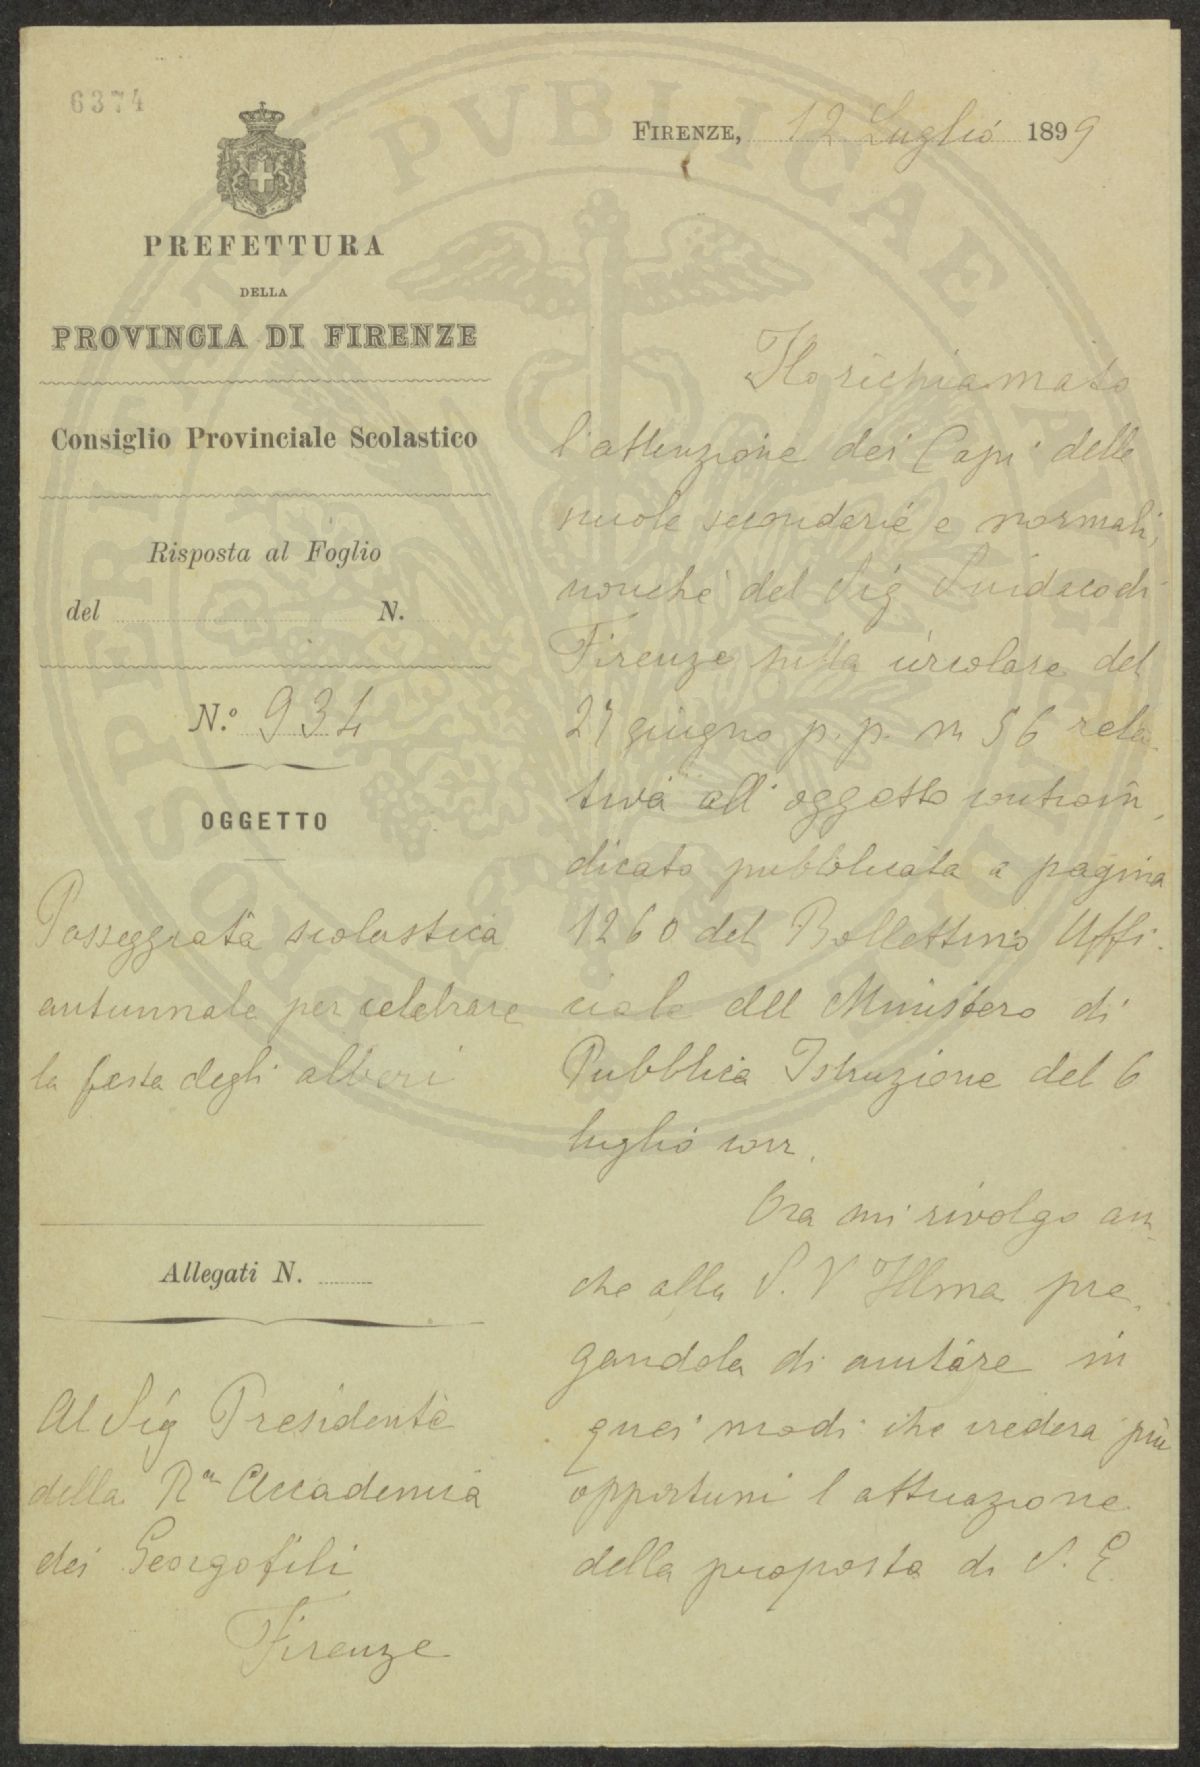 6374
FIRENZE, 12 Luglio 1899
PREFETTURA
DELLA
PROVINCIA DI FIRENZE
Consiglio Provinciale Scolastico
Risposta al Foglio
del N.
N.º 934
OGGETTO
Passeggiata scolastica
autunnale per celebrare
la festa degli alberi
Allegati N.
Al Sig Presidente
della Ra Accademia
dei Georgofili
Firenze
Ho richiamato
l'attenzione dei Capi delle
scuole secondarie e normali,
nonchè del Sig Sindaco di
Firenze sulla circolare del
27 giugno p.p. n 56 rela-
tiva all'oggetto controin-
dicato pubblicata a pagina
1260 del Bollettino Uffi-
ciale del Ministero di
Pubblica Istruzione del 6
luglio corr.
Ora mi rivolgo an-
che alla S. V Illma pre-
gandola di aiutare in
quei modi che crederà più
opportuni l attuazione
della proposta di S. E.
PROSPERITATI PVBLICAE AVGENDAE